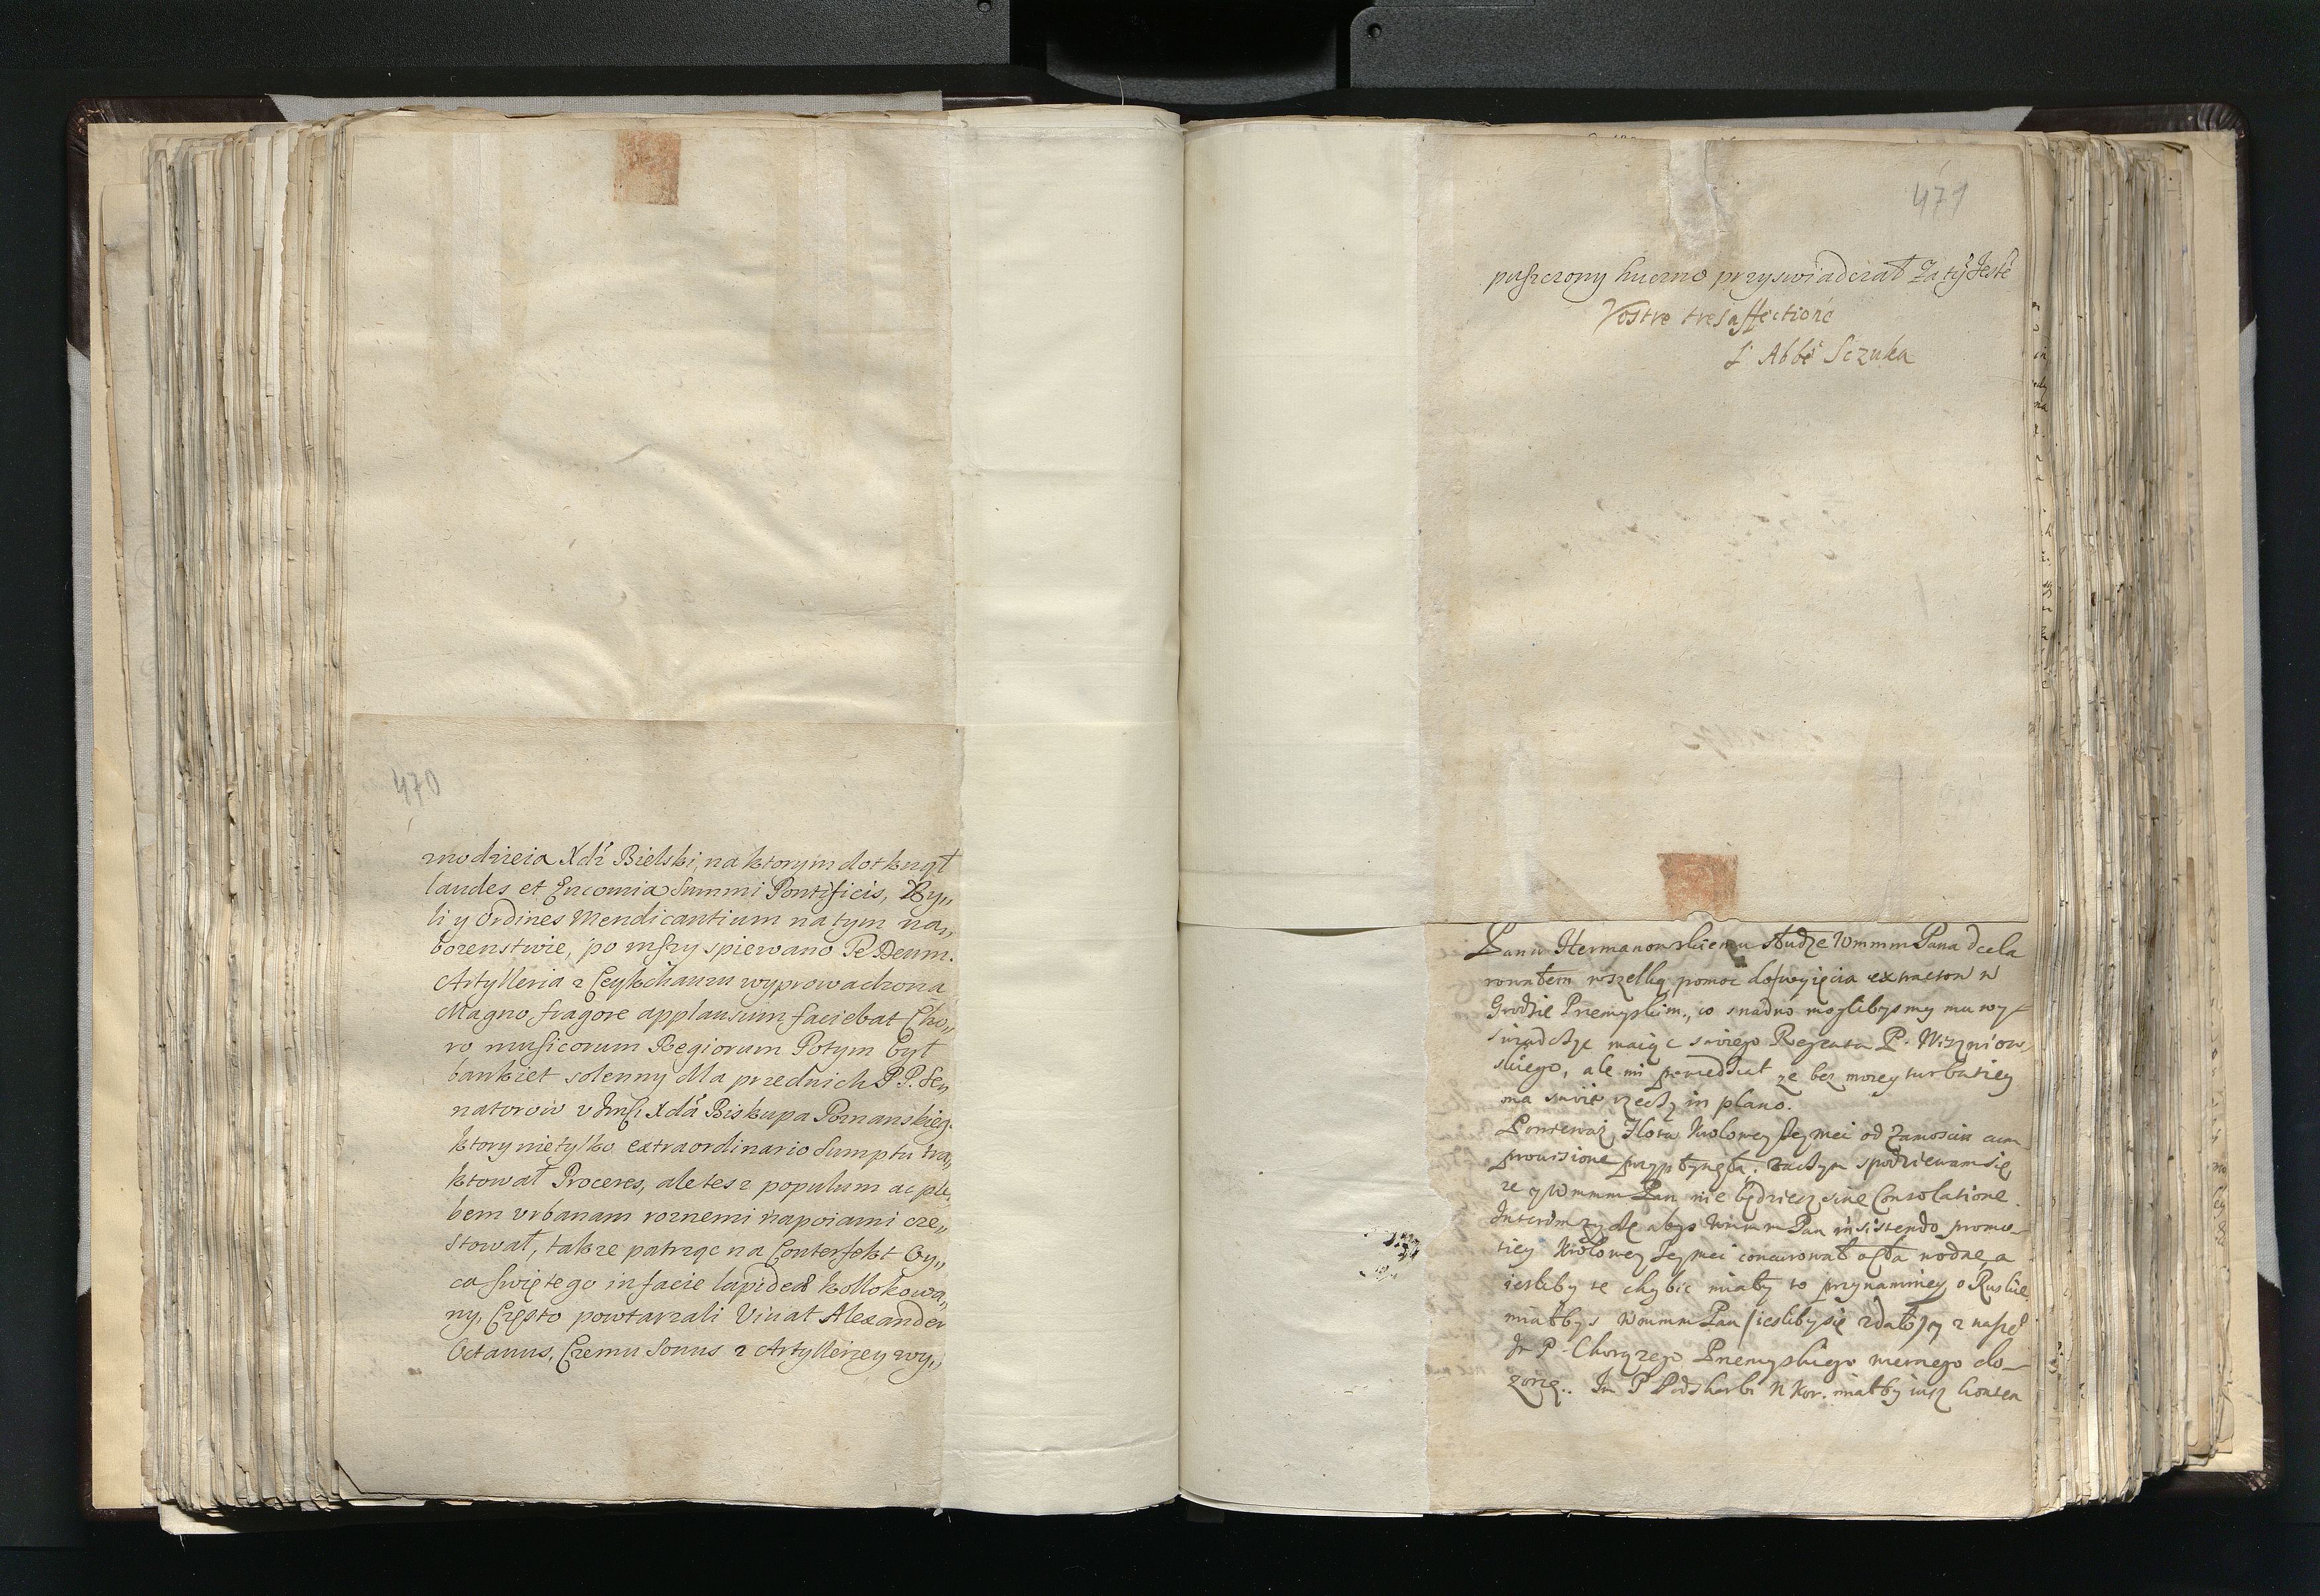 470
modzieia Xdz Bielski, na ktorym dotknął
laudes et Encomia Summi Pontificis, By„
li y Ordines Mendicantium na tym na„
bozenstwie, po mszy spiewano Te Deum.
Artylleria z Ceykhauzu wyprowadzona
Magno fragore applausum faciebat Cho„
ro musicorum Regiorum Potym był
bankiet solenny dla przednich PP. Sen„
natorow v Xdza Biskupa Poznanskieg.
ktory nietylko extraordinario sumptu tra„
ktował Proceres, ale tesz populum ac ple„
bem vrbanam roznemi napoiami cze„
stował, takze patrząc na Conterfekt Oy„
ca świętego in facie lapidea kollokowa„
ny, Często powtarzali Viuat Alexander
Octauus, Czemu Sonus z Artylleryey wy„
471
puszczony huczno przyswiadczał Zatÿ Jestē
Vostre tres affectioné
L'Abbé Sczuka
Panu Hermanowskiemu słudze Wmmm Pana decla
rowałem wszelką pomoc do wyięcia extractow w
Grodzie Przemyskim, co snadno moglibysmy mu wy-
swiadczyc maiąc swiego Regenta P. Wiszniow„
skiego, ale mi powiedział ze bez moiey turbatiey
ma swoie rzeczy in plano.
Poniewaz Flota Krolowey Jeymci od Zamoscia cum
prouisione przypłynęła, zaczym spodziewam się
ze y Wmmm Pan nie będziesz sine Consolatione.
Interim zyczę abys Wmmm Pan insistendo promo-
tiey Krolowey Jeymci concurował o cła wodne, a
iesliby te chybic miały to przynamniey o Ruskie
miałbys Wmmm Pan /iesliby się zdało/ y z naszeo
Jm P Chorązego Przemyskiego wiernego do-
zorcę. Jm P Podskarbi N Kor. miałby iusz